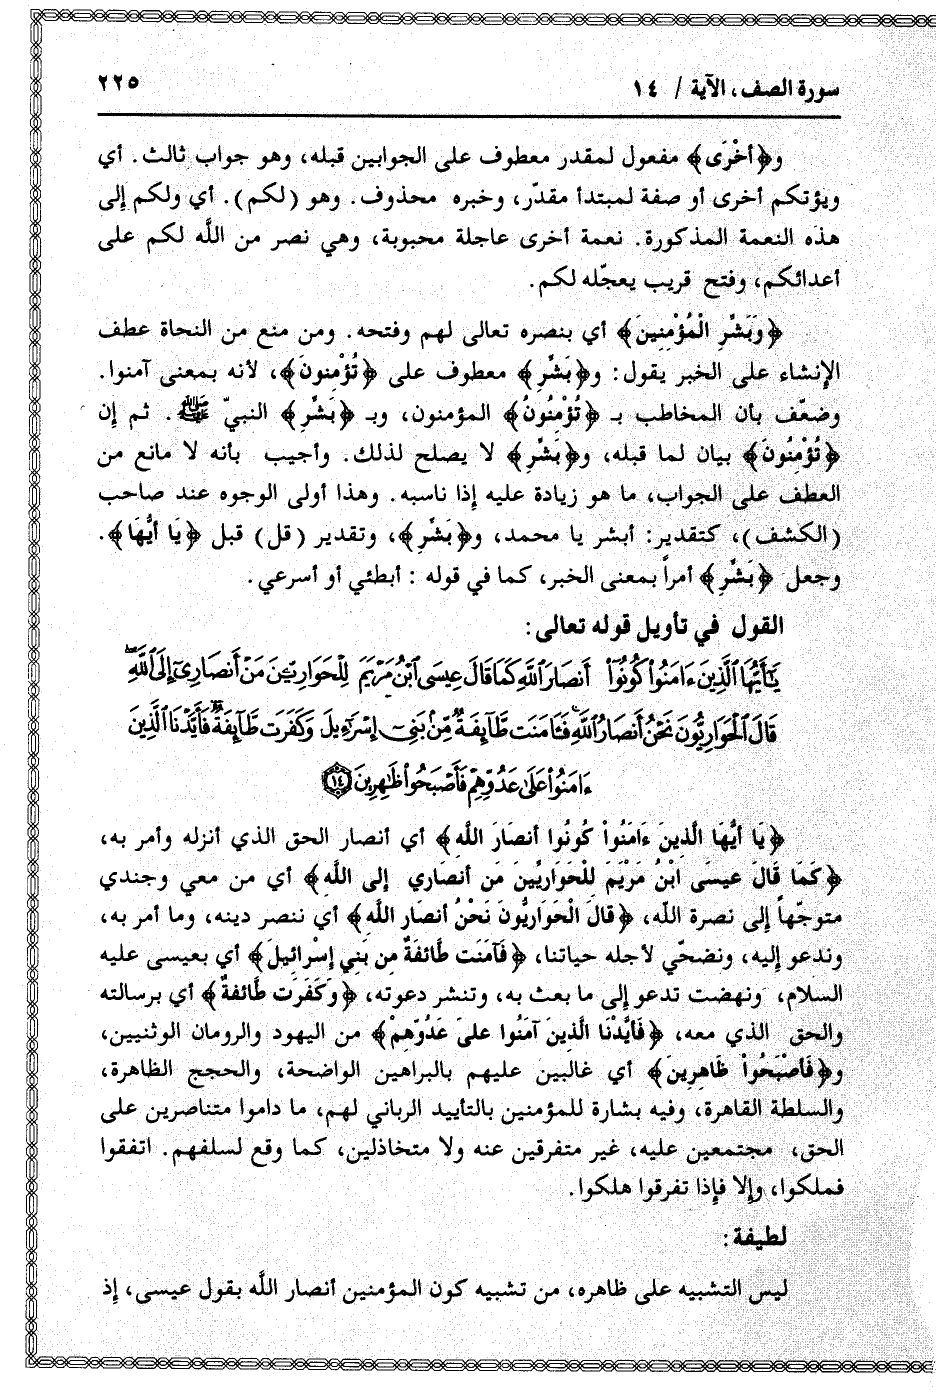 سورة الصف، الآية / ١٤
٢٢٥
و﴿أُخْرَى﴾ مفعول لمقدر معطوف على الجوابين قبله، وهو جواب ثالث. أي
ويؤتكم أخرى أو صفة لمبتدأ مقدّر، وخبره محذوف. وهو (لكم). أي ولكم إلى
هذه النعمة المذكورة. نعمة أخرى عاجلة محبوبة، وهي نصر من اللَّه لكم على
أعدائكم، وفتح قريب يعجّله لكم.
﴿وَبَشِّرِ الْمُؤْمِنِينَ﴾ أي بنصره تعالى لهم وفتحه. ومن منع من النحاة عطف
الإنشاء على الخبر يقول: و﴿بَشِّرِ﴾ معطوف على ﴿تُؤْمِنونَ﴾، لأنه بمعنى آمنوا.
وضعّف بأن المخاطب بـ ﴿تُؤْمِنُونَ﴾ المؤمنون، وبـ ﴿بَشِّرِ﴾ النبيّ ﷺ. ثم إن
﴿تُؤْمِنُونَ﴾ بيان لما قبله، و﴿بَشِّرِ﴾ لا يصلح لذلك. وأجيب بأنه لا مانع من
العطف على الجواب، ما هو زيادة عليه إذا ناسبه. وهذا أولى الوجوه عند صاحب
(الكشف)، كتقدير: أبشر يا محمد، و﴿بَشِّرِ﴾، وتقدير (قل) قبل ﴿يَا أَيُّهَا﴾.
وجعل ﴿بَشِّرِ﴾ أمراً بمعنى الخبر، كما في قوله : أبطئي أو أسرعي.
القول في تأويل قوله تعالى:
يَٰٓأَيُّهَا ٱلَّذِينَ ءَامَنُوا۟ كُونُوٓا۟ أَنصَارَ ٱللَّهِ كَمَا قَالَ عِيسَى ٱبْنُ مَرْيَمَ لِلْحَوَارِيِّـۧنَ مَنْ أَنصَارِىٓ إِلَى ٱللَّهِ ۖ
قَالَ ٱلْحَوَارِيُّونَ نَحْنُ أَنصَارُ ٱللَّهِ ۖ فَـَٔامَنَت طَّآئِفَةٌ مِّنۢ بَنِىٓ إِسْرَٰٓءِيلَ وَكَفَرَت طَّآئِفَةٌ ۖ فَأَيَّدْنَا ٱلَّذِينَ
ءَامَنُوا۟ عَلَىٰ عَدُوِّهِمْ فَأَصْبَحُوا۟ ظَٰهِرِينَ ١٤
﴿يَا أَيُّهَا الَّذِينَ ءَامَنُواْ كُونُوا أَنصَارَ اللَّهِ﴾ أي أنصار الحق الذي أنزله وأمر به،
﴿كَمَا قَالَ عيسَى ابْنُ مَرْيَمَ لِلْحَوَارِيِّينَ مَن أَنصَارِي إِلى اللَّهِ﴾ أي من معي وجندي
متوجّهاً إلى نصرة اللَّه، ﴿قَالَ الْحَوَارِيُّونَ نَحْنُ أَنصَار اللَّهِ﴾ أي ننصر دينه، وما أمر به،
وندعو إليه، ونضحّي لأجله حياتنا، ﴿فَآمَنَت طَّائفَةٌ مِن بَنِي إِسْرائِيلَ﴾ أي بعيسى عليه
السلام، ونهضت تدعو إلى ما بعث به، وتنشر دعوته، ﴿وَكَفَرَت طَّائفةٌ﴾ أي برسالته
والحق الذي معه، ﴿فَأَيَّدْنَا الَّذِينَ آمَنُوا علىَ عَدُوِّهِمْ﴾ من اليهود والرومان الوثنيين،
و﴿فَأَصْبَحُواْ ظَاهِرِينَ﴾ أي غالبين عليهم بالبراهين الواضحة، والحجج الظاهرة،
والسلطة القاهرة، وفيه بشارة للمؤمنين بالتأييد الرباني لهم، ما داموا متناصرين على
الحق، مجتمعين عليه، غير متفرقين عنه ولا متخاذلين، كما وقع لسلفهم. اتفقوا
فملكوا، وإلا فإذا تفرقوا هلكوا.
لطيفة:
ليس التشبيه على ظاهره، من تشبيه كون المؤمنين أنصار اللَّه بقول عيسى، إذ